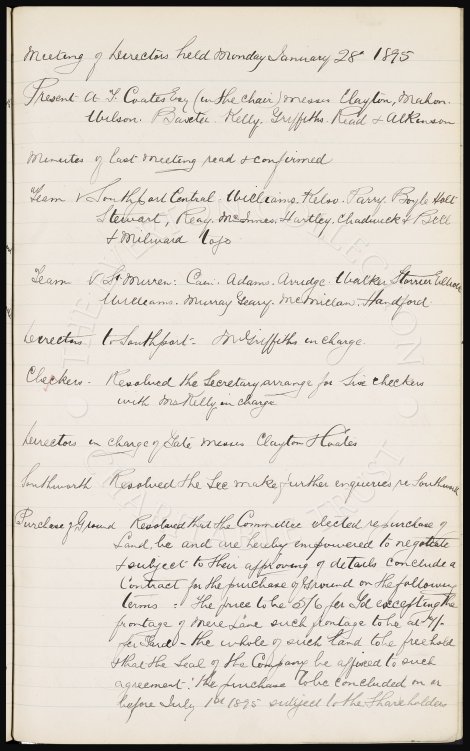 Meeting of Directors held Monday January 28th 1895
Present A. T. Coates Esq (in the chair) Messrs Clayton, Mahon.
Wilson. Baxter. Kelly. Griffiths. Read & Atkinson
Minutes of last Meeting read & confirmed
Team v Southport Central. Williams. Kelso. Parry. Boyle Holt
Stewart, Reay. McInnes. Hartley. Chadwick & Bell
& Milward Capo
Team v St Mirren: Cain. Adams. Arridge. Walker Storrier Elliott
Williams. Murray Geary. McMillan. Handford
Directors to Southport - Mr Griffiths in charge.
Checkers. Resolved the Secretary arrange for Six Checkers
with Mr Kelly in charge
Directors in charge of Gate Messrs Clayton & Coates
Southworth Resolved the Sec make further enquiries re Southworth
Purchase of Ground Resolved that the Committee elected re purchase of
Land, be and are hereby empowered to negotiate
& subject to their approving of details conclude a
Contract for the purchase of Ground on the following
terms :- The price to be 5/6 per Yd excepting the
frontage of Mere Lane such frontage to be at 7/-
per Yard - the whole of such land to be freehold
& that the Seal of the Company be affixed to such
agreement: the purchase to be concluded on or
before July 1st 1895 subject to the Shareholders
THE EVERTON COLLECTION
CHARITABLE TRUST